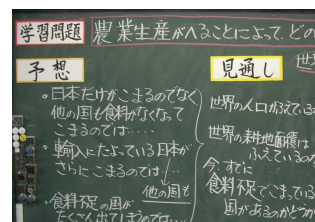 学習問題
農業生産がへることによって、どの
予想
・日本だけがこまるのでなく
他の国も食料がなくなって
こまるのでは・・・・・
・輸入にたよっている日本が
さらにこまるのでは・・・
他の国も
・食料不足の国が
たくさん出てしまうのでは・・・
見通し
世界の人口がふえている
世界の耕地面積は
ふえているの
今、すでに
食料不足でこまっている
国があるのかどうか